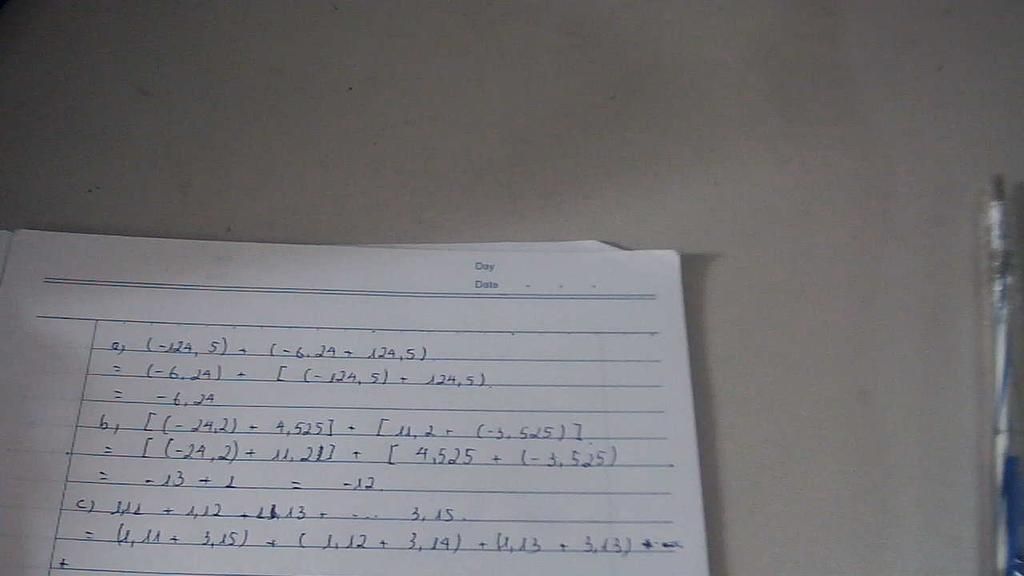 Day
Date - - -
a, (-124,5) + (-6,24 + 124,5)
= (-6,24) + [ (-124,5) + 124,5)
= -6,24
b, [(-24,2) + 4,525] + [11,2 + (-3,525)]
= [(-24,2) + 11,2]] + [ 4,525 + (-3,525)
= -13 + 1 = -12
c) 1,11 + 1,12 + 1,13 + ... 3,15
= (1,11 + 3,15) + (1,12 + 3,14) + (1,13 + 3,13) +
+